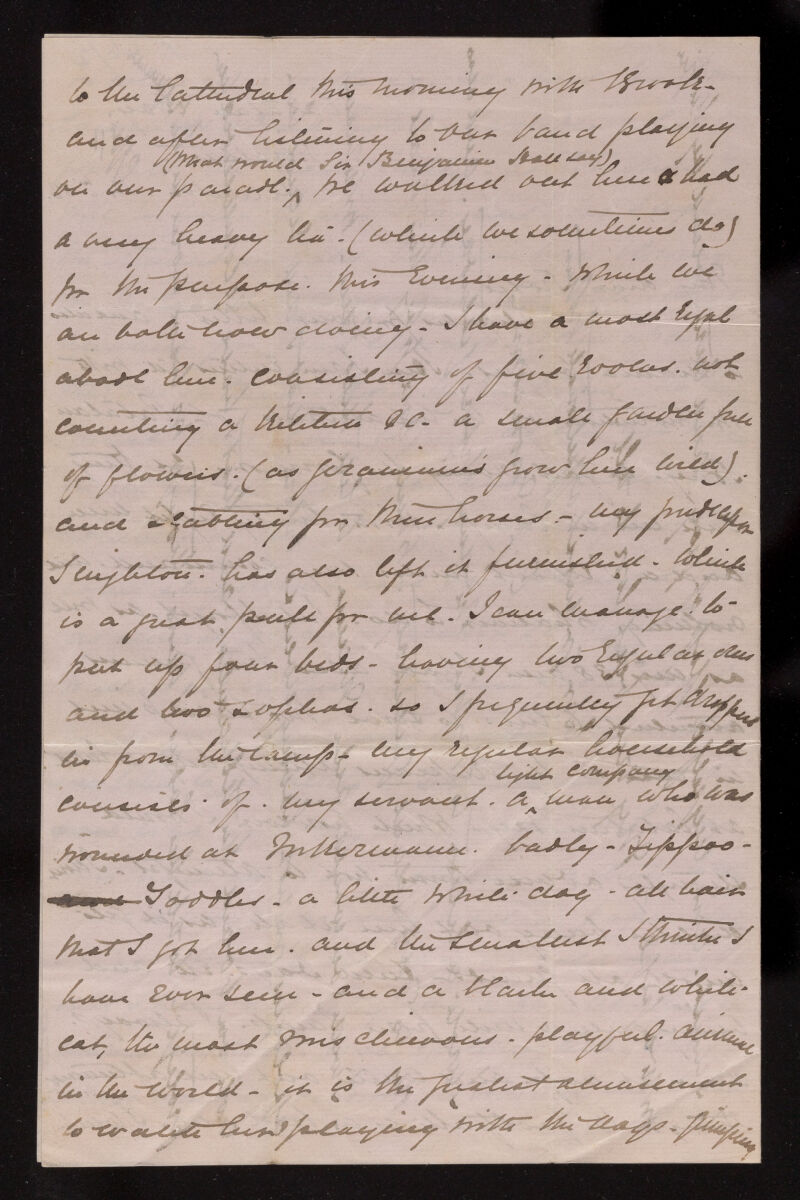 to the Cathedral this morning with Brook-
and after listening to our band playing
(What would Sir Benjamin Hall say)
on our parade. ^ We walked out here & had
a very heavy tea - (which we sometimes do)
for the purpose. this Evening - which we
are both now doing - I have a most
abode here. consisting of five rooms. not
counting a Kitchen &c - a small garden full
of flowers. (as geraniums grow here wild).
and stabling for three horses - my predecessor
Leighton. has also left it furnished - which
is a great pull for me - I can manage. to
put up four beds - having two regular ones
and two sophas. so I frequently get droppers
in from the Camp - my regular household
light company
consists of. my servant. a ^ man who was
wounded at Inkermann. badly - Tippoo -
Toddles - a little white dog - all hair
that I got here. and the smallest I think I
have ever seen - and a black and white
cat, the most mischievous - playful. animal
in the world - it is the greatest amusement
to watch her playing with the dogs - jumping